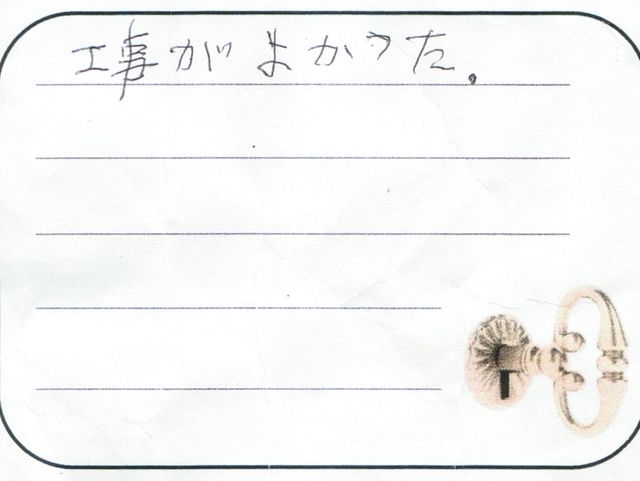 工事がよかった。